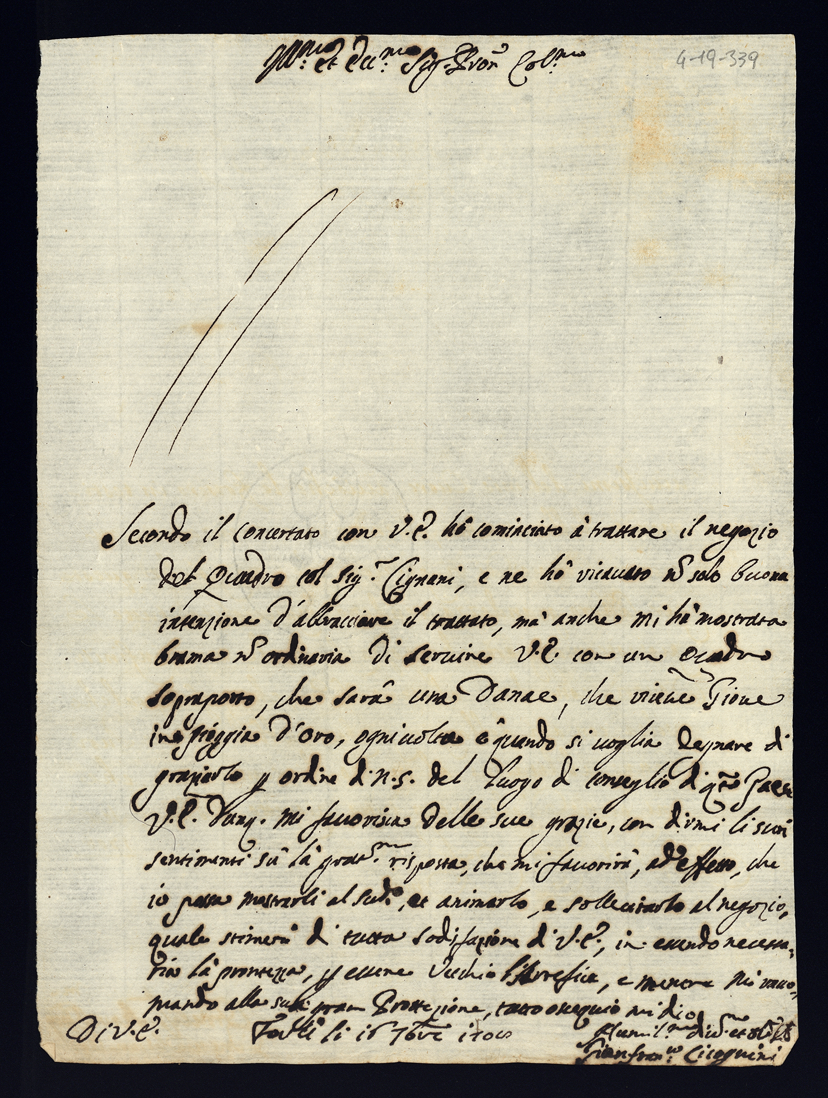 Ill.mo et Ecc.mo Sig.r Pron Col.mo
4-19-339
Secondo il concertato con V.E. hò cominciato à trattare il negozio
del Quadro col Sig.r Cignani, e ne hò ricavato nō solo buona
intenzione d'abbracciare il trattato, mà anche mi hà mostrato
brama nō ordinaria di servire V.E. con un Quadro
sopraporto, che sarà una Danae, che riceve Giove
in pioggia d'oro, ogni volta e quando si voglia degnare di
graziarlo p ordine di N.S. del luogo di conseglio di
V.E. Dunq. mi favorisca delle sue grazie, con dirmi li suoi
sentimenti sù la risposta, che mi favorirà, ad effetto, che
io possa mostrarli al sud.o, et animarlo, e sollecitarlo al negozio,
quale stimerei di tutta sodisfazione di V.E., in essendo necessa-
ria la prontezza, p essere Vecchio e mentre mi racco-
mando alla sua gran Protezione, tutto ossequio mi dico
Di V.E. Forlì li 16 7bre
Humil.mo
Gianfran.co Cicognini